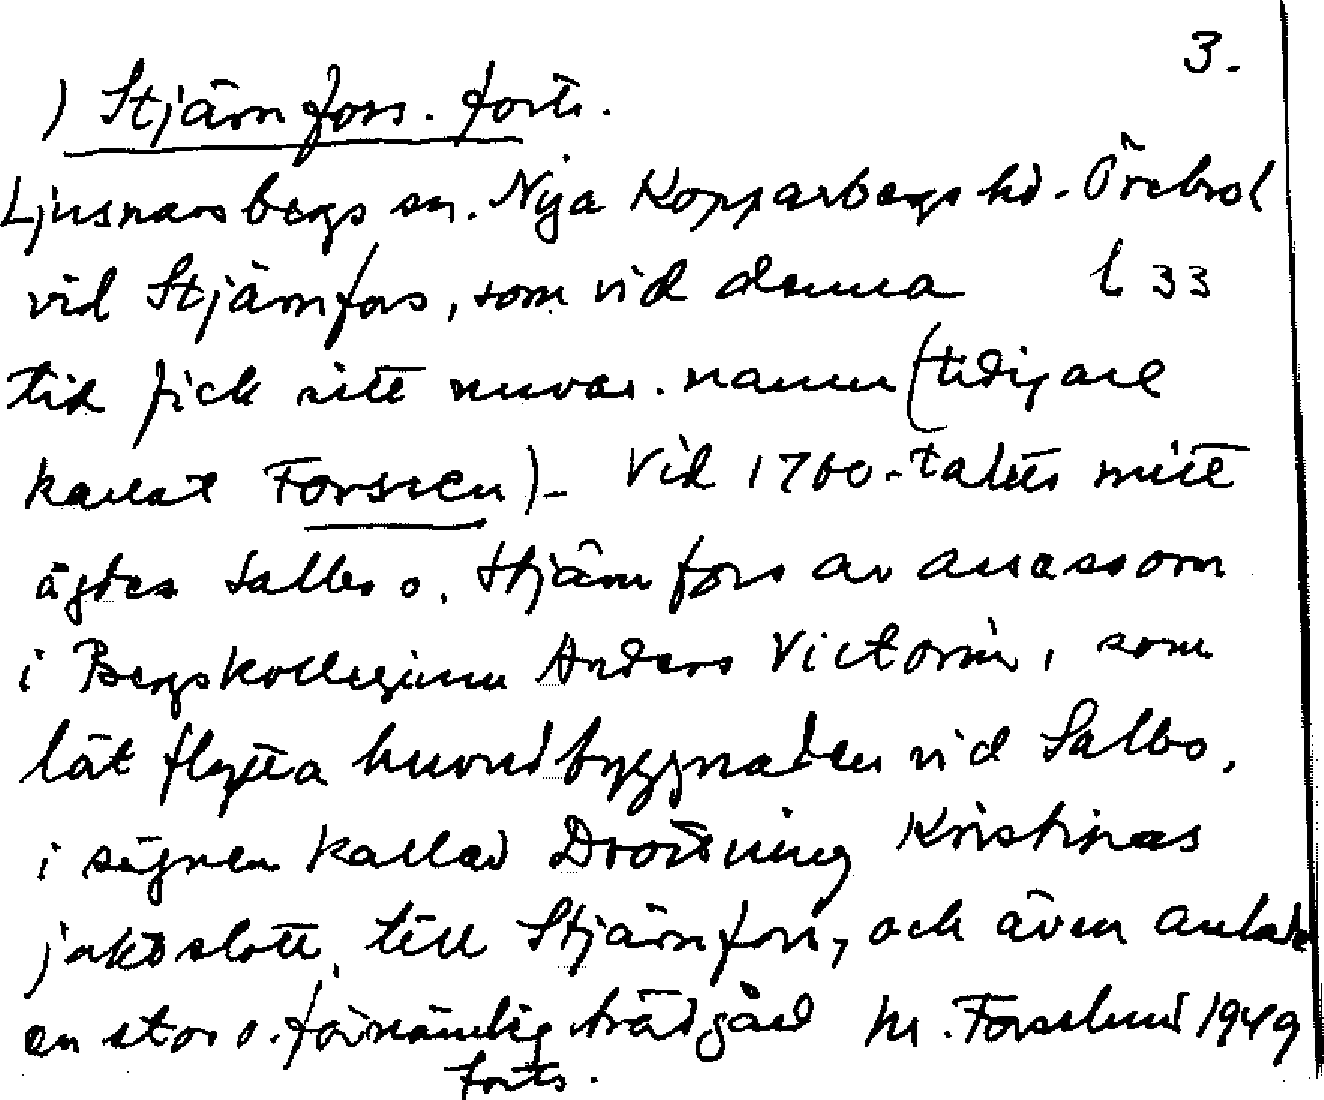 3.
) Stjärnfors. forts.
Ljusnarsbergs sn. Nya Kopparbergs hd. Örebro l
vid Stjärnfors, som vid denna l 33
tid fick sitt nuvar. namn (tidigare
kallat Forssen). Vid 1700-talets mitt
ägdes Salbo o. Stjärnfors av assessorn
i Bergskollegium Anders Victorin, som
lät flytta huvudbyggnaden vid Salbo,
i sägnen kallad Drottning Kristinas
jaktslott, till Stjärnfors, och även anlade
en stor o. förnämlig trädgård M. Forslund 1949
forts.